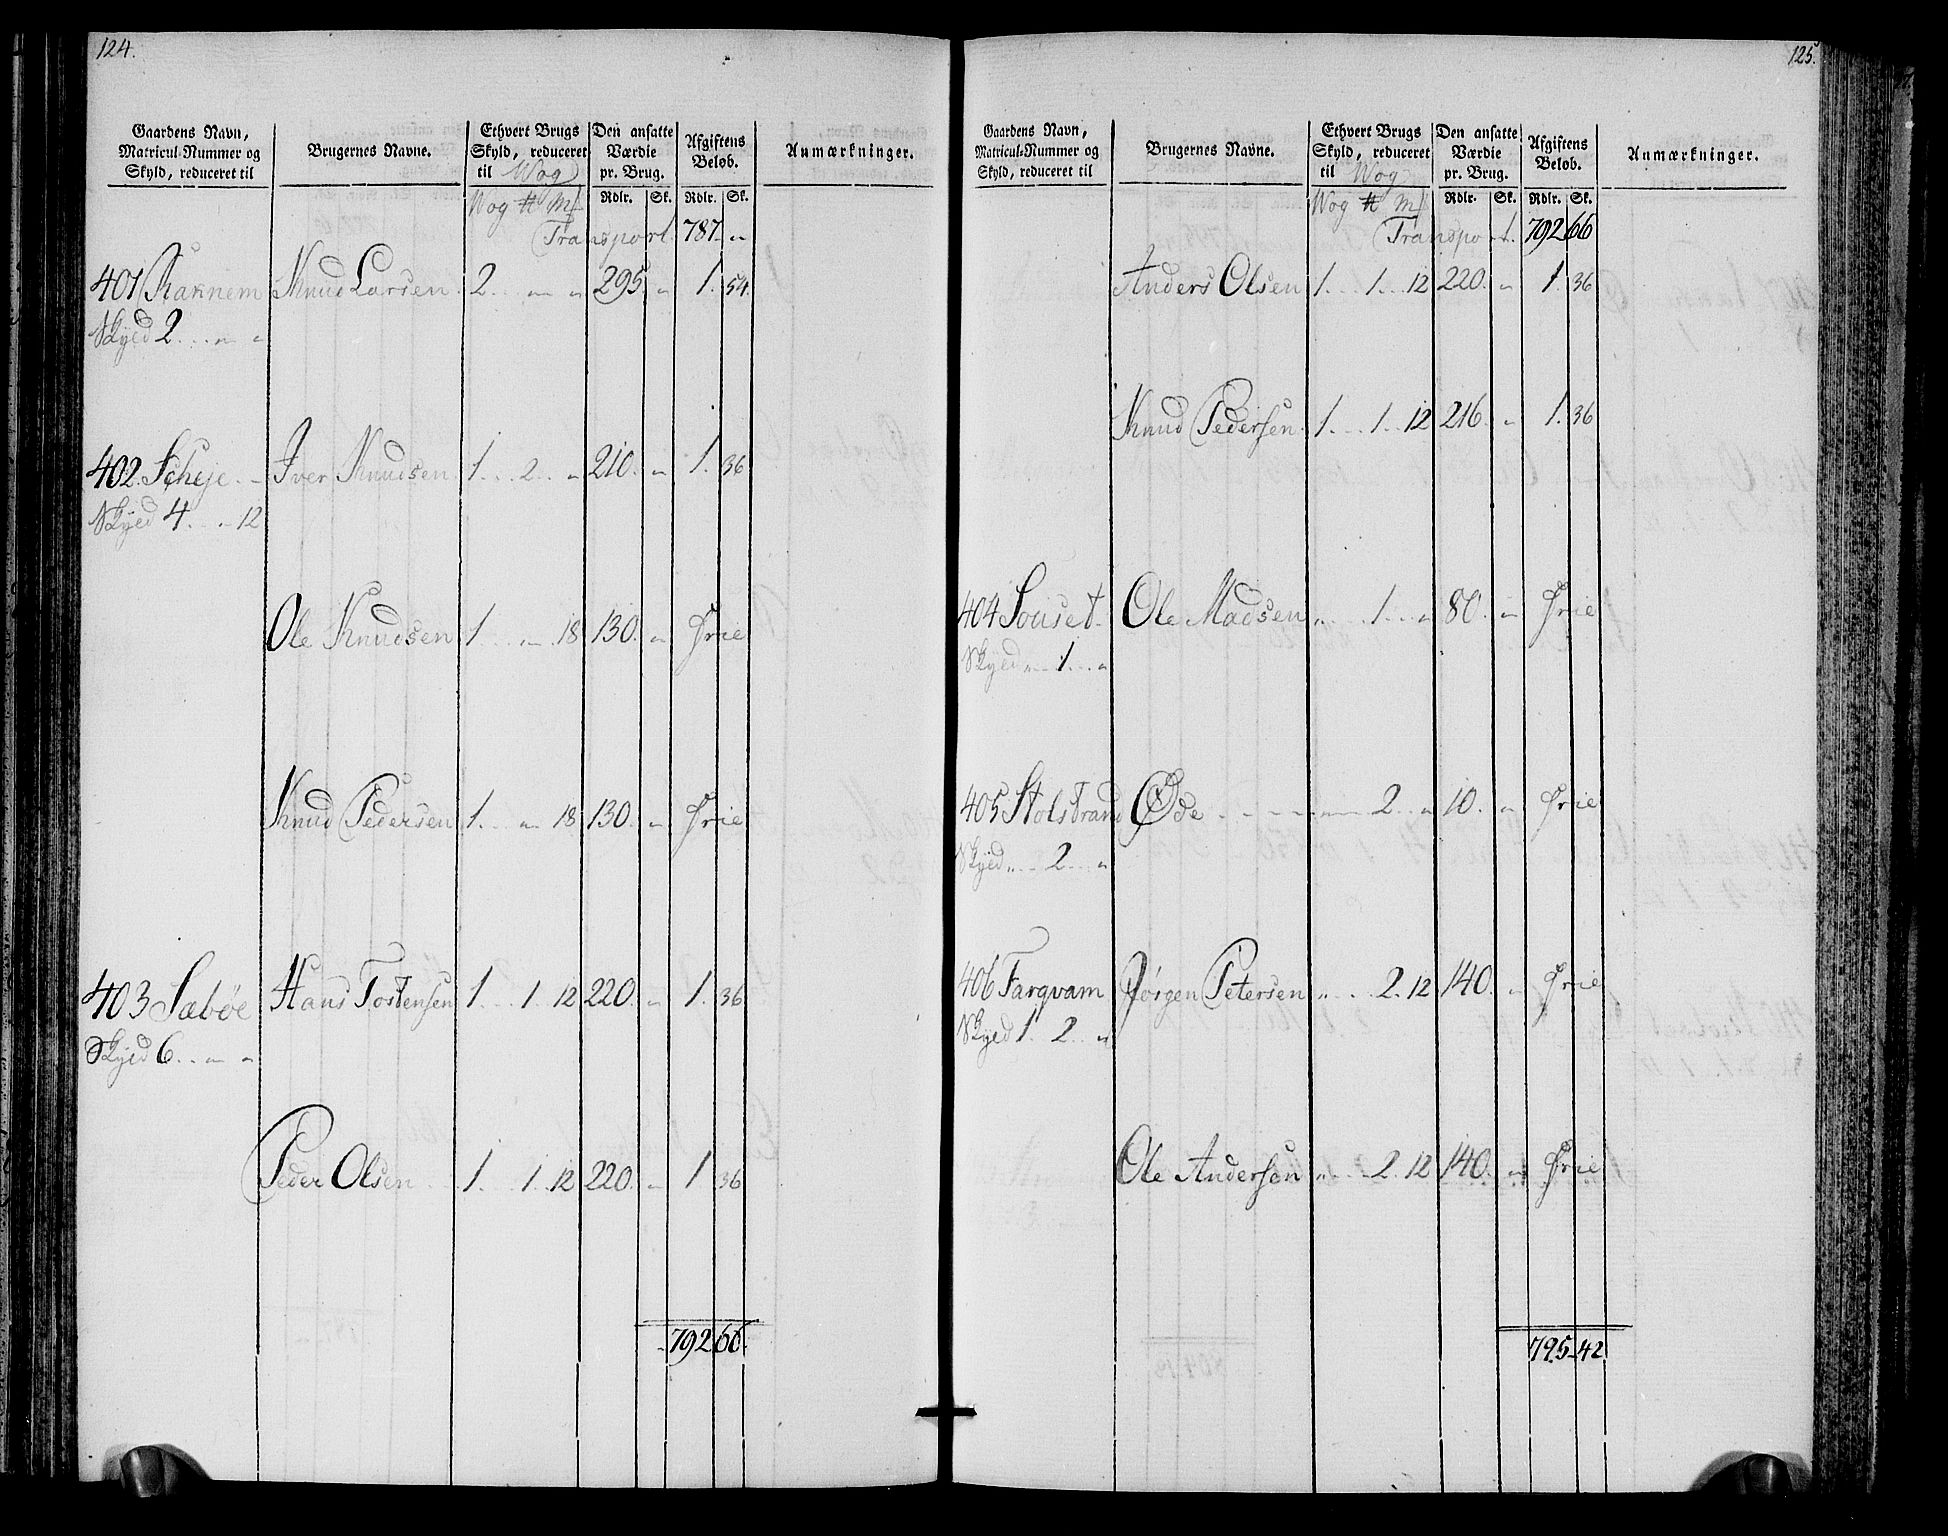 124.
Gaardens Navn, Matricul-Nummer og Skyld, reduceret til
Brugernes Navne.
Ethvert Brugs Skyld, reduceret til Wog
Den ansatte Værdie pr. Brug.
Afgiftens Beløb.
Anmærkninger.
Wog ℔ M Rdlr. Sk. Rdlr. Sk.
Transport. 787. "
401 Raknem Knud Larsen 2. " " 295. " 1. 54.
Skyld 2. . . " "
402 Scheje Iver Knudsen 1. . 2. . " 210. " 1. 36
Skyld 4. . . 12
Ole Knudsen 1. . . " 18 130. " Frie
Knud Pedersen 1. . . " 18 130. " Frie
403 Sæbøe Hans Tostensen 1. . . 1. 12 220. " 1. 36
Skyld 6. . " "
Peder Olsen 1. . . 1. 12 220. " 1 36
792 66.
125.
Gaardens Navn, Matricul-Nummer og Skyld, reduceret til
Brugernes Navne.
Ethvert Brugs Skyld, reduceret til Wog
Den ansatte Værdie pr. Brug.
Afgiftens Beløb.
Anmærkninger.
Wog ℔ M Rdlr. Sk. Rdlr. Sk.
Transport. 792 66
Anders Olsen 1. . . 1. . . 12 220. " 1. 36
Knud Pedersen 1. . . 1. . 12 216. " 1. 36
404 Souset Ole Madsen " . . 1. . . " 80. " Frie
Skyld " . . 1. . . "
405 Stolstrand Øde - - - " 2. . " 10. " Frie
Skyld " . . 2. . . "
406 Fargvam Jørgen Petersen " . . 2. 12 140. " Frie
Skyld 1. 2. . "
Ole Andersen " . . 2. 12 140. " Frie
795 42